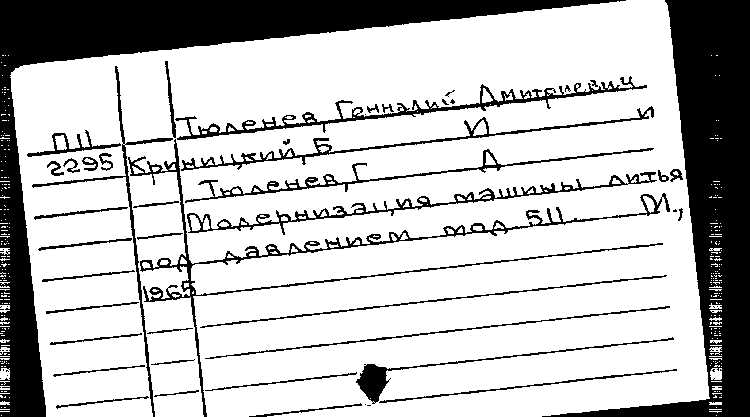 Тюленев, Геннадий Дмитриевич
П11
2295 Криницкий, Б И и
Тюленев, Г Д
Модернизация машины литья
под давлением мод 511. М.,
1965